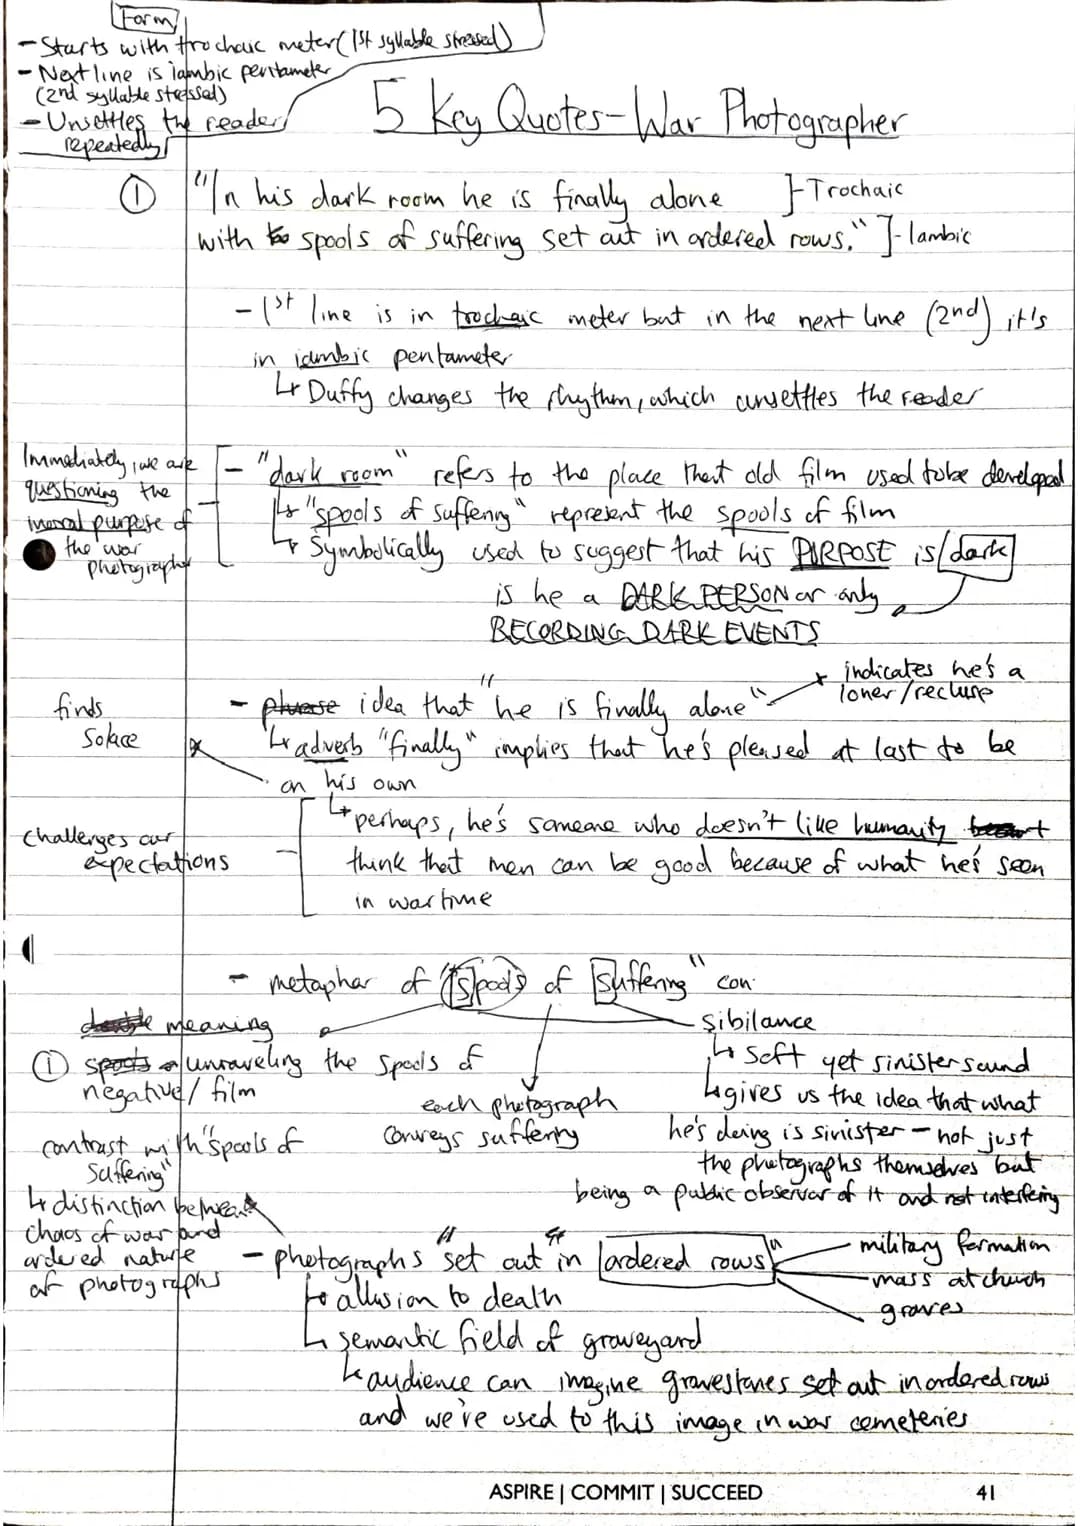 Form
- Starts with trochaic meter (1st syllable stressed)
- Next line is iambic pentameter
(2nd syllable stressed)
- Unsettles the reader
repeatedly
5 Key Quotes - War Photographer
① "In his dark room he is finally alone ]- Trochaic
with spools of suffering set out in ordered rows." ]- Iambic
- 1st line is in trochaic meter but in the next line (2nd) it's
in iambic pentameter
↳ Duffy changes the rhythm, which unsettles the reader
Immediately, we are
questioning the
moral purpose of
the war
photographer
- "dark room" refers to the place that old film used to be developed
↳ "spools of suffering" represent the spools of film
↳ Symbolically used to suggest that his PURPOST is dark
is he a DARK PERSON or only
RECORDING DARK EVENTS
indicates he's a
loner/recluse
finds
Solace
- phrase idea that "he is finally alone"
↳ adverb "finally" implies that he's pleased at last to be
on his own
Challenges our
expectations
↳ perhaps, he's someone who doesn't like humanity
think that men can be good because of what he's seen
in wartime
- metaphor of "spools of suffering" con
double meaning
① spools unraveling the spools of
negative / film
each photograph
conveys suffering
sibilance
↳ soft yet sinister sound
↳ gives us the idea that what
he's doing is sinister - not just
the photographs themselves but
being a public observer of it and not interfering
contrast with "spools of
suffering"
↳ distinction between
chaos of war and
ordered nature
of photographs
- photographs "set out in ordered rows"
military formation
mass at church
graves
↳ allusion to death
↳ semantic field of graveyard
↳ audience can imagine gravestones set out in ordered rows
and we're used to this image in war cemeteries
ASPIRE | COMMIT | SUCCEED
41